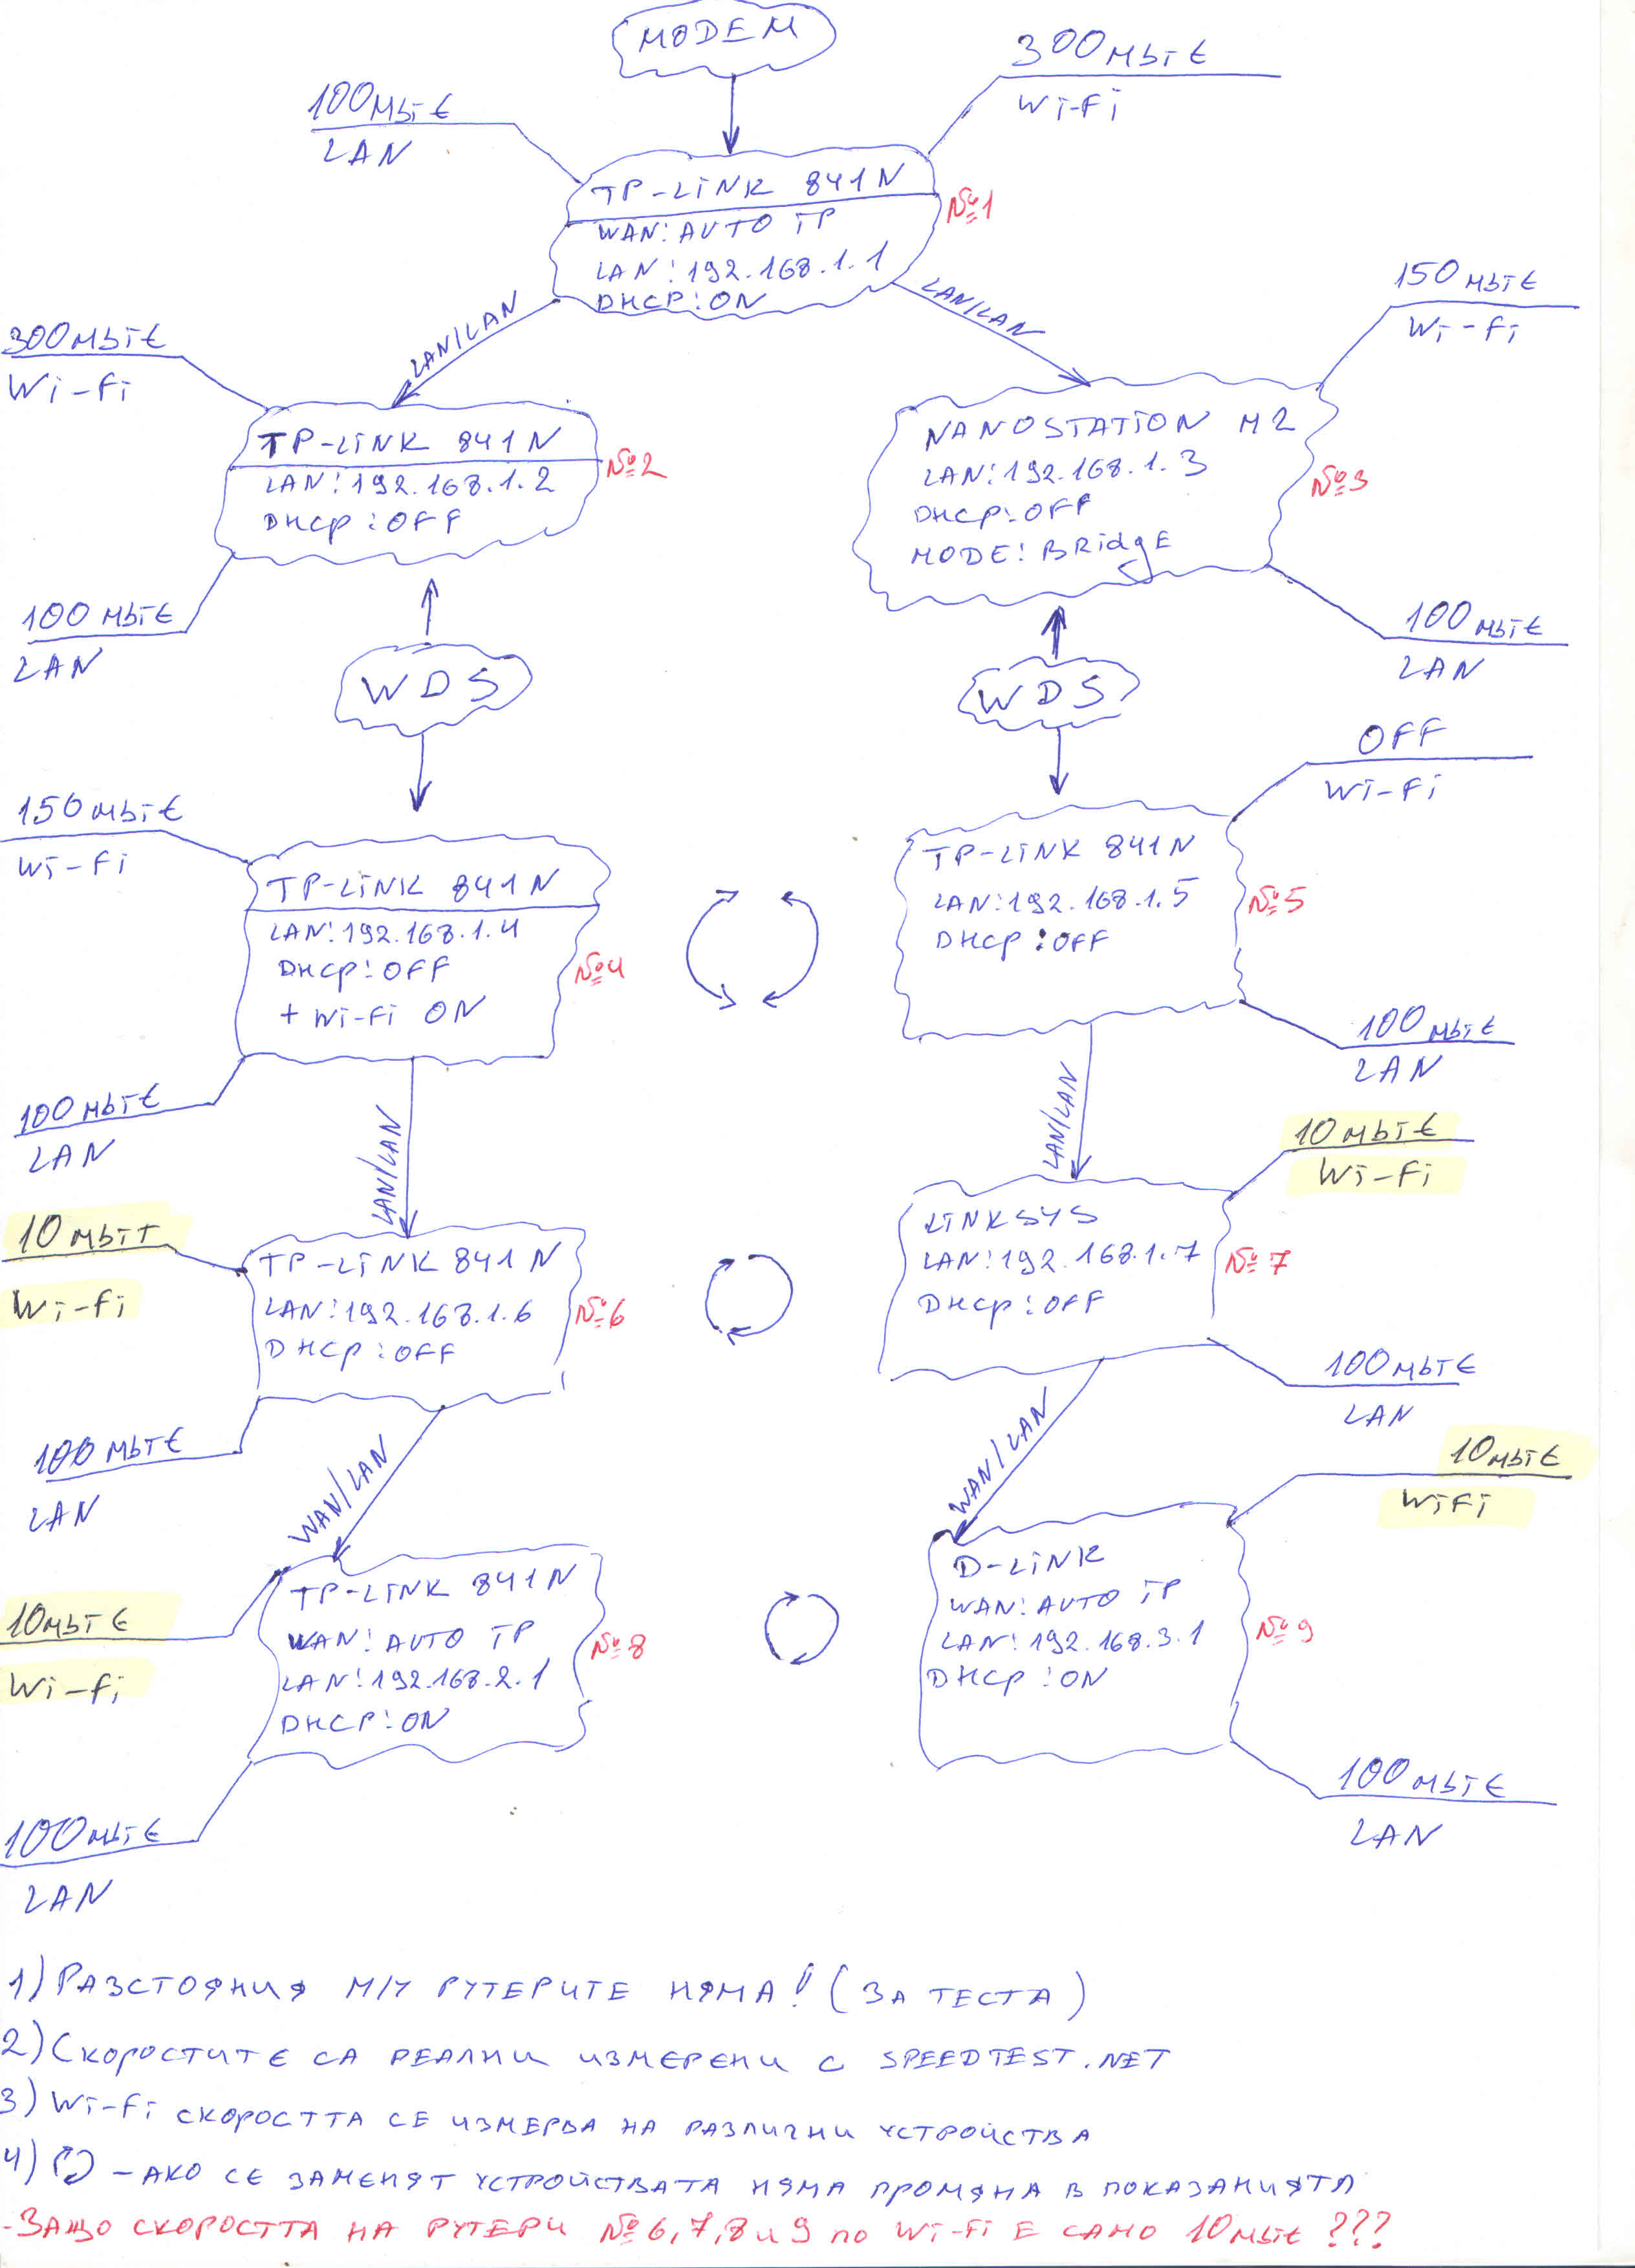 MODEM
300 Mbit
Wi-Fi
100 Mbit
LAN
TP-LINK 841N
WAN: AUTO IP
LAN: 192.168.1.1
DHCP: ON
№1
LAN/LAN
LAN/LAN
150 Mbit
Wi-Fi
300 Mbit
Wi-Fi
TP-LINK 841N
LAN: 192.168.1.2
DHCP: OFF
№2
NANOSTATION M2
LAN: 192.168.1.3
DHCP: OFF
MODE: BRidgE
№3
100 Mbit
LAN
100 Mbit
LAN
WDS
WDS
OFF
Wi-Fi
150 Mbit
Wi-Fi
TP-LINK 841N
LAN: 192.168.1.4
DHCP: OFF
+ Wi-Fi ON
№4
TP-LINK 841N
LAN: 192.168.1.5
DHCP: OFF
№5
100 Mbit
LAN
100 Mbit
LAN
LAN/LAN
LAN/LAN
10 Mbit
Wi-Fi
10 Mbit
Wi-Fi
TP-LINK 841N
LAN: 192.168.1.6
DHCP: OFF
№6
LINKSYS
LAN: 192.168.1.7
DHCP: OFF
№7
100 Mbit
LAN
100 Mbit
LAN
WAN/LAN
WAN/LAN
10 Mbit
WiFi
10 Mbit
Wi-Fi
TP-LINK 841N
WAN: AUTO IP
LAN: 192.168.2.1
DHCP: ON
№8
D-LINK
WAN: AUTO IP
LAN: 192.168.3.1
DHCP: ON
№9
100 Mbit
LAN
100 Mbit
LAN
1) РАЗСТОЯНИЯ М/У РУТЕРИТЕ НЯМА! (ЗА ТЕСТА)
2) СКОРОСТИТЕ СА РЕАЛНИ ИЗМЕРЕНИ С SPEEDTEST.NET
3) Wi-Fi СКОРОСТТА СЕ ИЗМЕРВА НА РАЗЛИЧНИ УСТРОЙСТВА
4) - АКО СЕ ЗАМЕНЯТ УСТРОЙСТВАТА НЯМА ПРОМЯНА В ПОКАЗАНИЯТА
- ЗАЩО СКОРОСТТА НА РУТЕРИ №6,7,8 и 9 по Wi-Fi Е САМО 10 Mbit ???